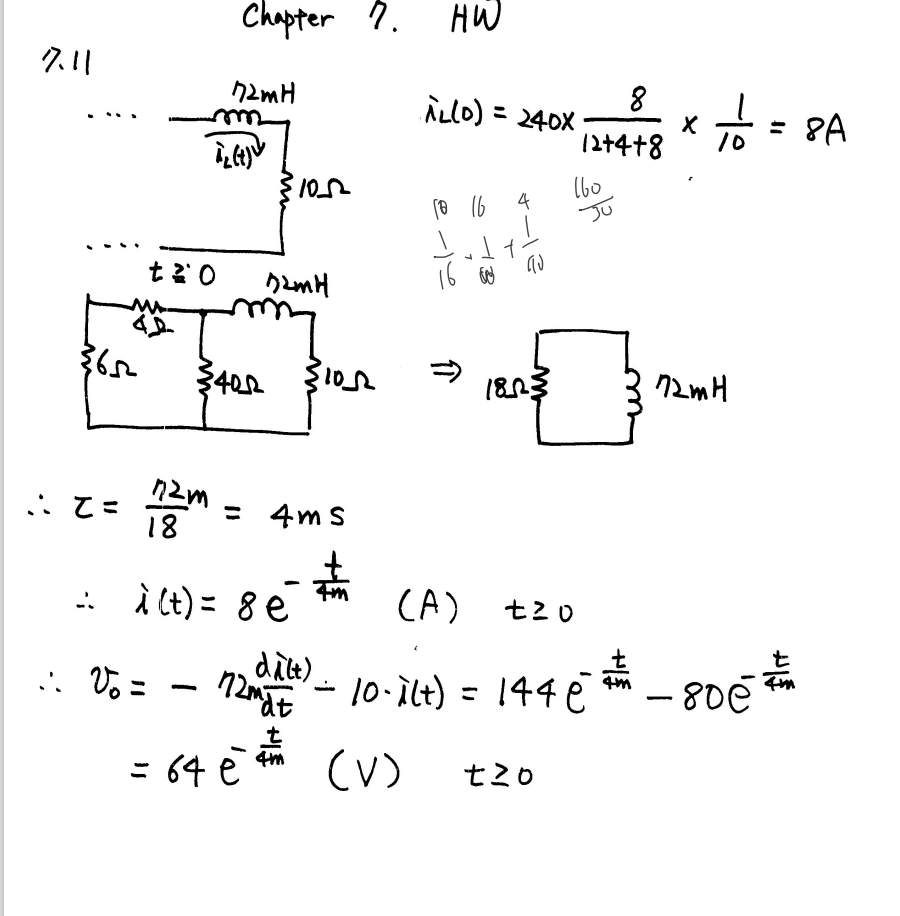 Chapter 7. HW
7.11
72mH
iL(t)
10Ω
iL(0) = 240× 8/(12+4+8) × 1/10 = 8A
10 16 4 160/
1/16 + 1/ + 1/
t ≥ 0
72mH
4Ω
6Ω
40Ω
10Ω
⇒
18Ω
72mH
∴ τ = 72m/18 = 4ms
∴ i(t) = 8e^(-t/4m) (A) t≥0
∴ Vo = - 72m di(t)/dt - 10·i(t) = 144e^(-t/4m) - 80e^(-t/4m)
= 64e^(-t/4m) (V) t≥0